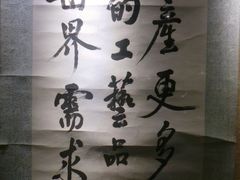 產更多
的工藝品
世界需求